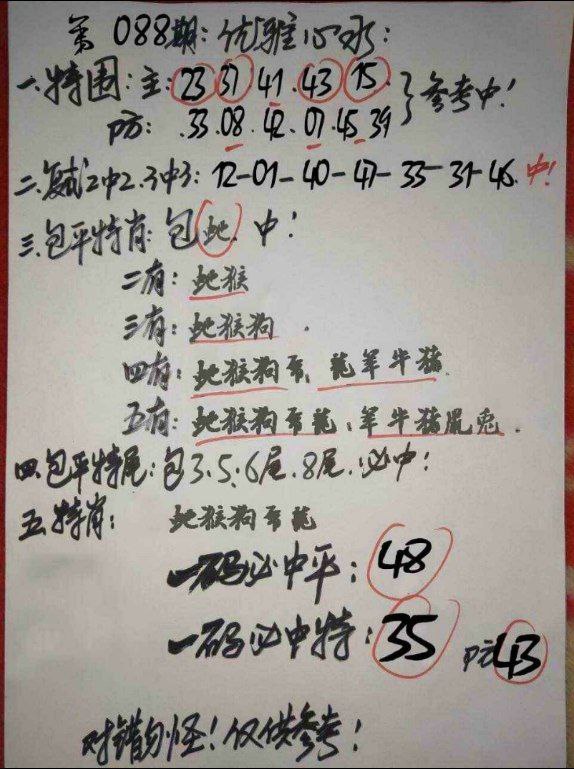 第088期:优雅心水:
一.特围:主:23 37 41.43 15. 参考中!
防:.33.08.42.07.45.39
二.复式2中2.3中3:12-01-40-47-35-31-46.中!
三.包平特肖:包蛇.中!
二有:蛇猴
三有:蛇猴狗.
四有:蛇猴狗 龙羊牛猪.
五有:蛇猴狗 龙、羊牛猪鼠兔.
四.包平特尾:包3.5.6尾.8尾.必中!
五.特肖:蛇猴狗 龙
一码必中平:48
一码必中特:35 防43
对错勿怪!仅供参考!